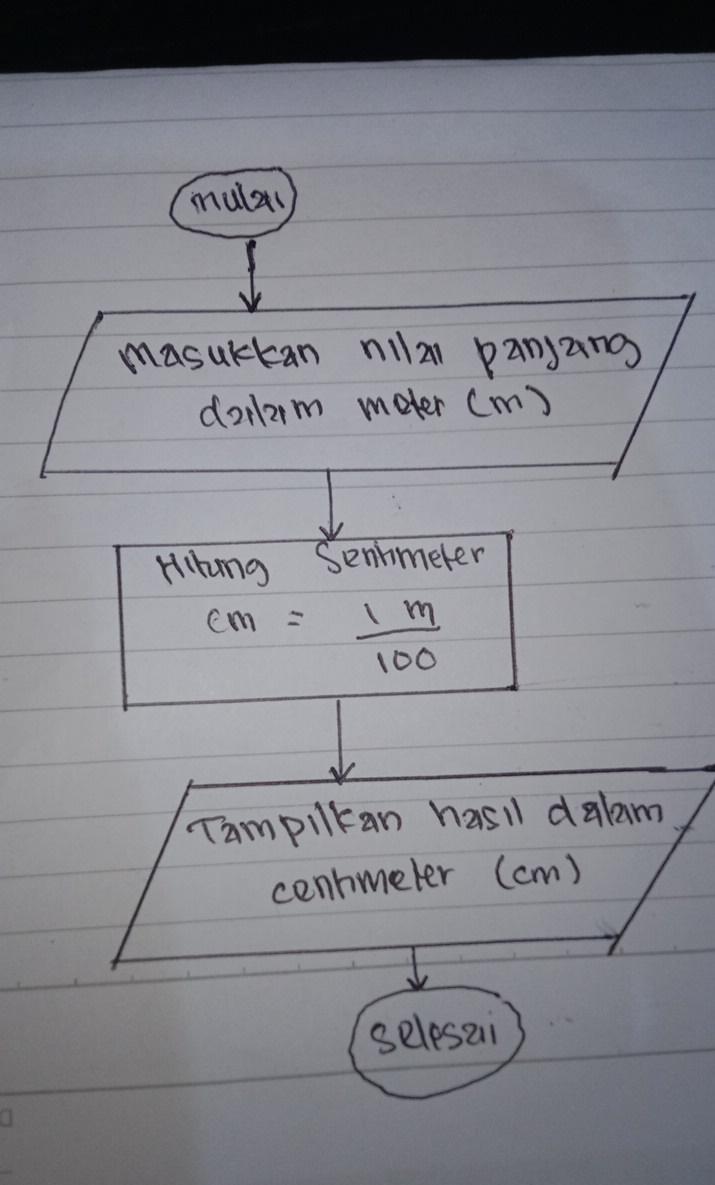 mulai
masukkan nilai panjang
dalam meter (m)
Hitung Sentimeter
cm = 1 m
100
Tampilkan hasil dalam
centimeter (cm)
selesai